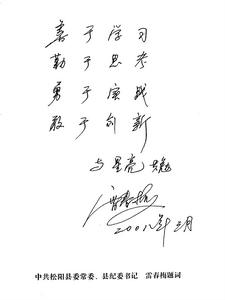 善于学习
勤于思考
勇于实战
敢于创新
与星亮共勉
雷春梅
2001年三月
中共松阳县委常委、县纪委书记 雷春梅题词